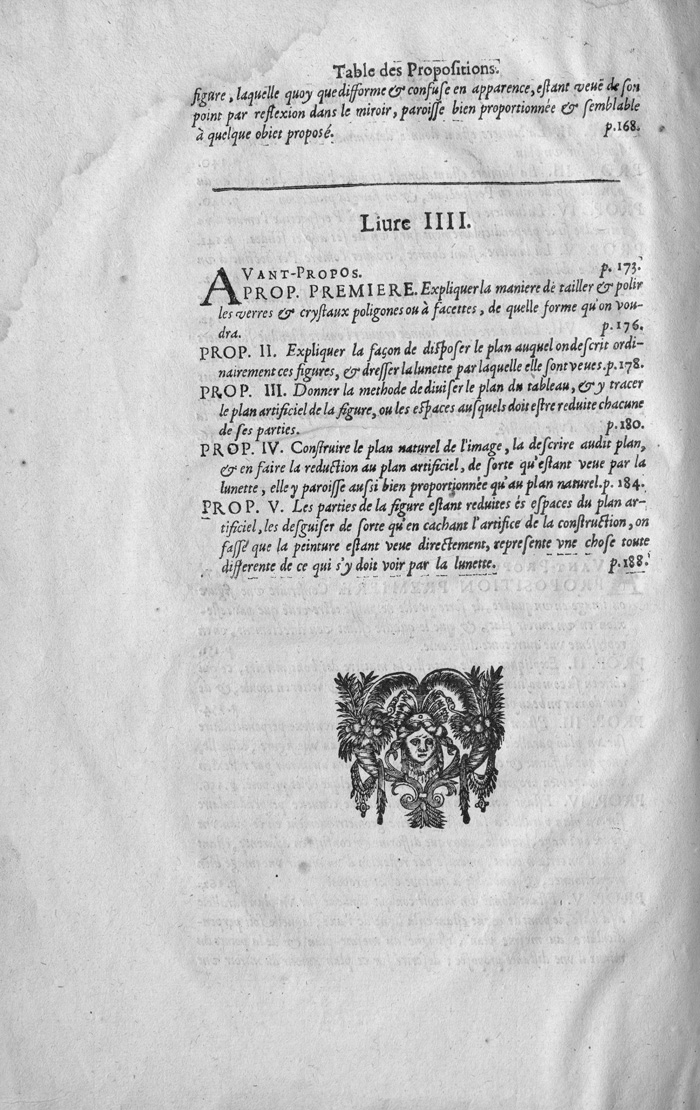 Table des Propositions.
figure, laquelle quoy que difforme & confuse en apparence, estant veuë de son
point par reflexion dans le miroir, paroisse bien proportionnée & semblable
à quelque obiet proposé. p.168.
Liure IIII.
AVANT-PROPOS. p. 173.
PROP. PREMIERE. Expliquer la maniere de tailler & polir
les verres & crystaux poligones ou à facettes, de quelle forme qu'on vou-
dra. p.176.
PROP. II. Expliquer la façon de disposer le plan auquel on descrit ordi-
nairement ces figures, & dresser la lunette par laquelle elle sont veues. p.178.
PROP. III. Donner la methode de diuiser le plan du tableau, & y tracer
le plan artificiel de la figure, ou les espaces ausquels doit estre reduite chacune
de ses parties. p.180.
PROP. IV. Construire le plan naturel de l'image, la descrire audit plan,
& en faire la reduction au plan artificiel, de sorte qu'estant veue par la
lunette, elle y paroisse aussi bien proportionnée qu'au plan naturel. p. 184.
PROP. V. Les parties de la figure estant reduites és espaces du plan ar-
tificiel, les desguiser de sorte qu'en cachant l'artifice de la construction, on
fasse que la peinture estant veue directement, represente vne chose toute
differente de ce qui s'y doit voir par la lunette. p.188.